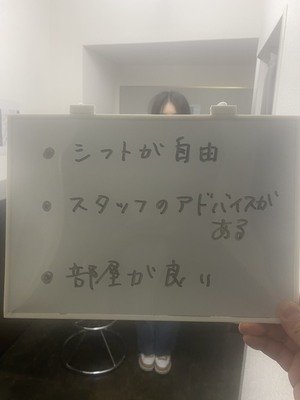 • シフトが自由
• スタッフのアドバイスが
ある
• 部屋が良い